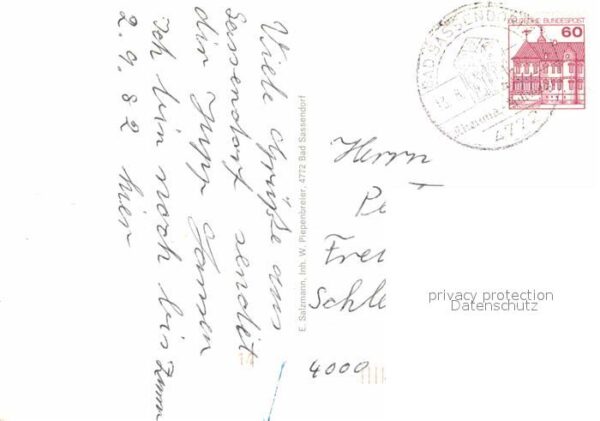 Viele Grüße aus
Sassendorf sendet
dir Jupp Jansen
Ich bin noch bis zum
2.9.82 hier
E. Salzmann, Inh. W. Piepenbreier, 4772 Bad Sassendorf
BAD SASSENDORF
4772
DEUTSCHE BUNDESPOST
60
Herrn
Pe
Frei
Schle
4000
privacy protection
Datenschutz